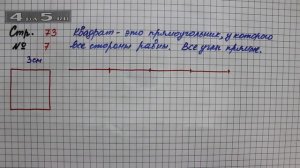 4 ДА 5 !
Стр. 73 Квадрат - это прямоугольник, у которого
№ 7 все стороны равны. Все углы прямые.
3 см